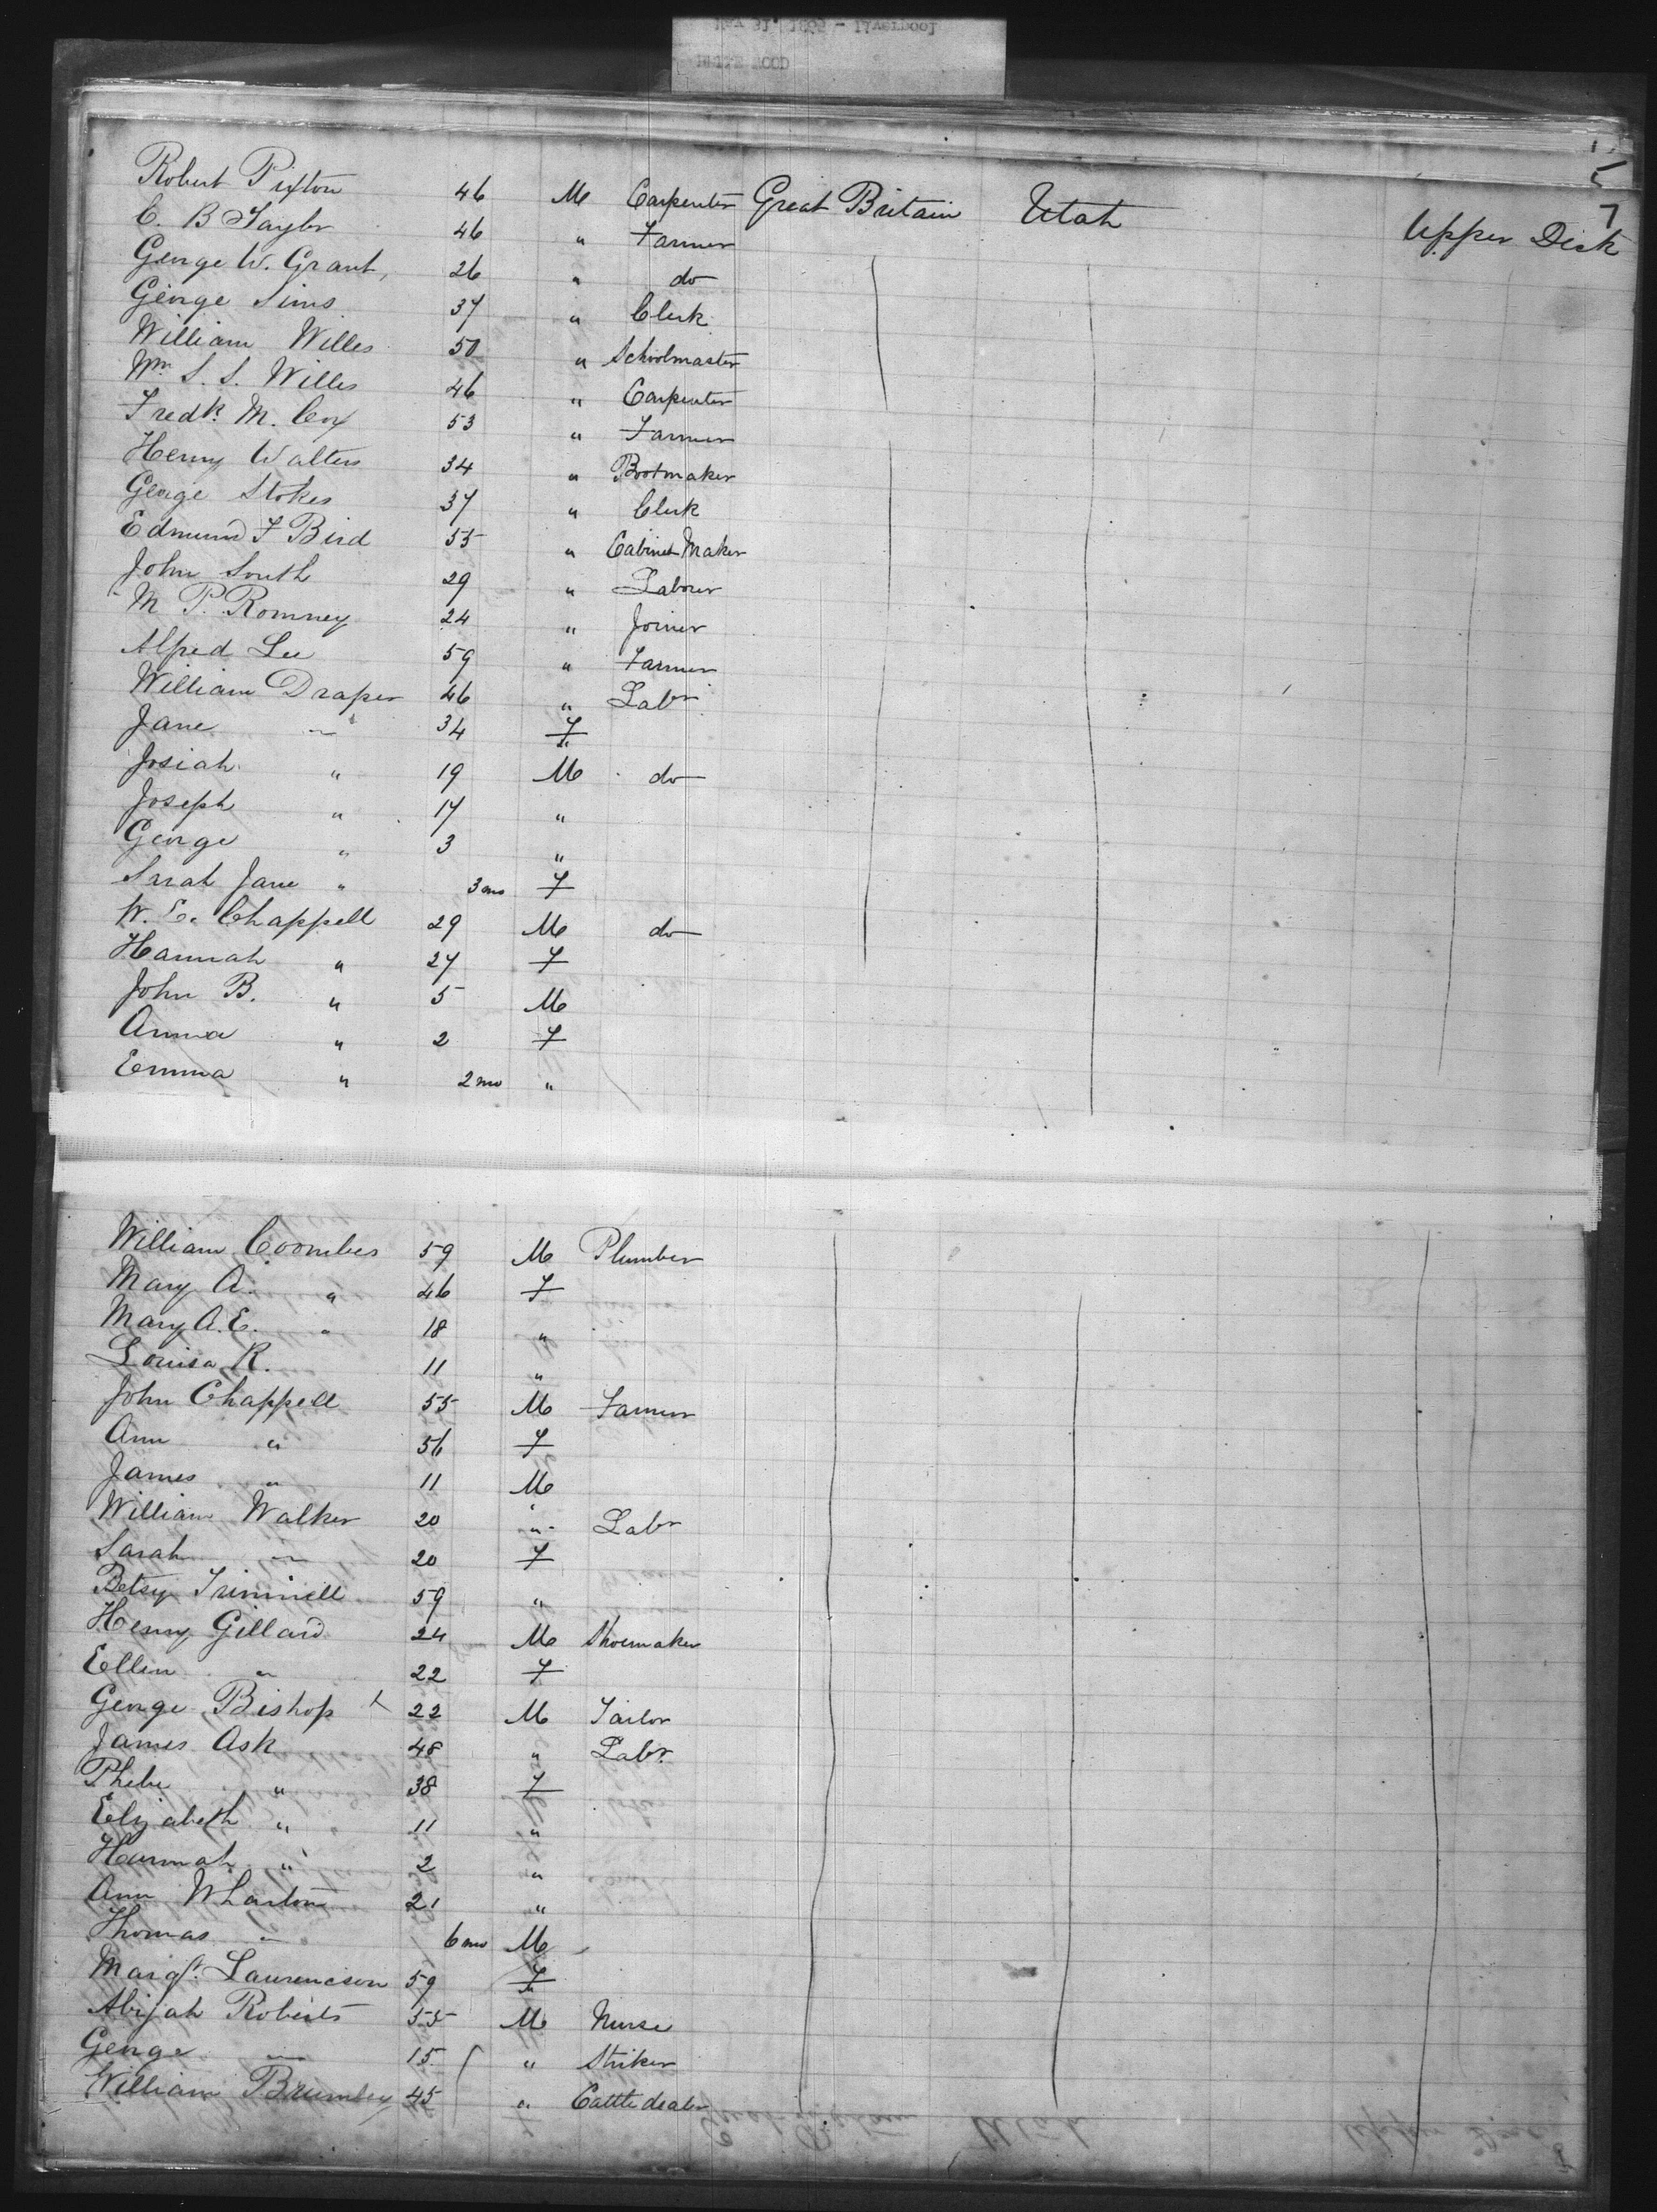 Robert Pixton 46 M Carpenter Great Britain Utah Upper Deck
C. B Taylor 46 " Farmer
George W. Grant, 26 " do
George Sims 37 " Clerk
William Willes 50 " Schoolmaster
Wm S. S. Willes 46 " Carpenter
Fredk. M. Cox 53 " Farmer
Henry Walters 34 " Bootmaker
George Stokes 37 " Clerk
Edmund F Bird 55 " Cabinet Maker
John South 29 " Labour
M P. Romney 24 " Joiner
Alfred Lee 59 " Farmer
William Draper 46 " Labr
Jane " 34 F
Josiah " 19 M do
Joseph " 17 "
George " 3 "
Sarah Jane " 3 mo F
W. E. Chappell 29 M do
Hannah " 27 F
John B. " 5 M
Anna " 2 F
Emma " 2 mo "
William Coombes 59 M Plumber
Mary A. " 46 F
Mary A. E. " 18 "
Louisa R. 11 "
John Chappell 55 M Farmer
Ann " 56 F
James " 11 M
William Walker 20 " Labr
Sarah " 20 F
Betsy Trimnell 59 "
Henry Gillard 24 M Shoemaker
Ellen " 22 F
George Bishop 22 M Tailor
James Ask 48 " Labr.
Phebe " 38 F
Elizabeth " 11 "
Hannah " 2 "
Ann Wharton 21 "
Thomas " 6 mo M
Margt. Laurencson 59 F
Abijah Roberts 55 M Nurse
George " 15 " Striker
William Brumley 45 " Cattle dealer